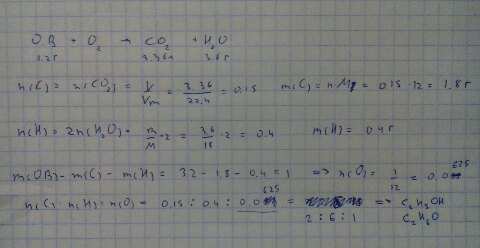 ОВ + O₂ → CO₂ + H₂O
3,2г 3,36л 3,6г
n(C) = n(CO₂) = V/Vm = 3,36/22,4 = 0,15 m(C) = n·M = 0,15·12 = 1,8г
n(H) = 2n(H₂O) = m/M·2 = 3,6/18·2 = 0,4 m(H) = 0,4г
m(ОВ) - m(C) - m(H) = 3,2 - 1,8 - 0,4 = 1 ⇒ n(O) = 1/12 = 0,0625
n(C) : n(H) : n(O) = 0,15 : 0,4 : 0,0625 = 2 : 6 : 1 ⇒ C₂H₅OH
C₂H₆O